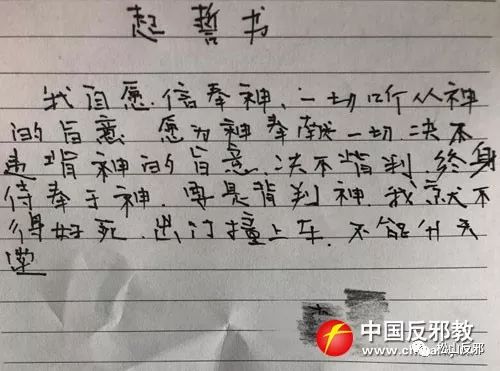 起誓书
我自愿信奉神、一切听从神
的旨意 愿为神奉献一切 决不
违背神的旨意、决不背判 终身
侍奉于神、要是背判神、我就不
得好死 出门撞上车、不能升天
堂
中国反邪教
松山反邪